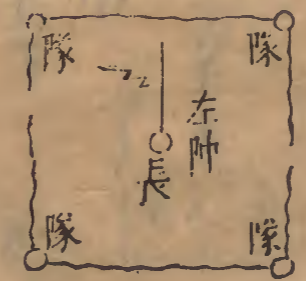 隊
隊
左帥
長
隊
隊